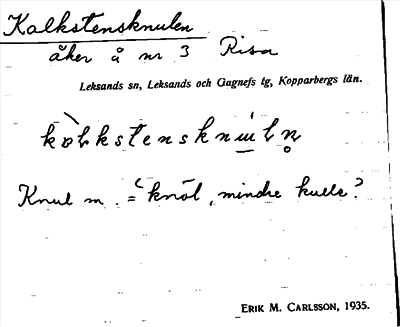 Kalkstensknulen
åker å nr 3 Risa
Leksands sn, Leksands och Gagnefs tg, Kopparbergs län.
kòlkstensknɯ́ln̥
Knul m. = "knöl, mindre kulle".
ERIK M. CARLSSON, 1935.